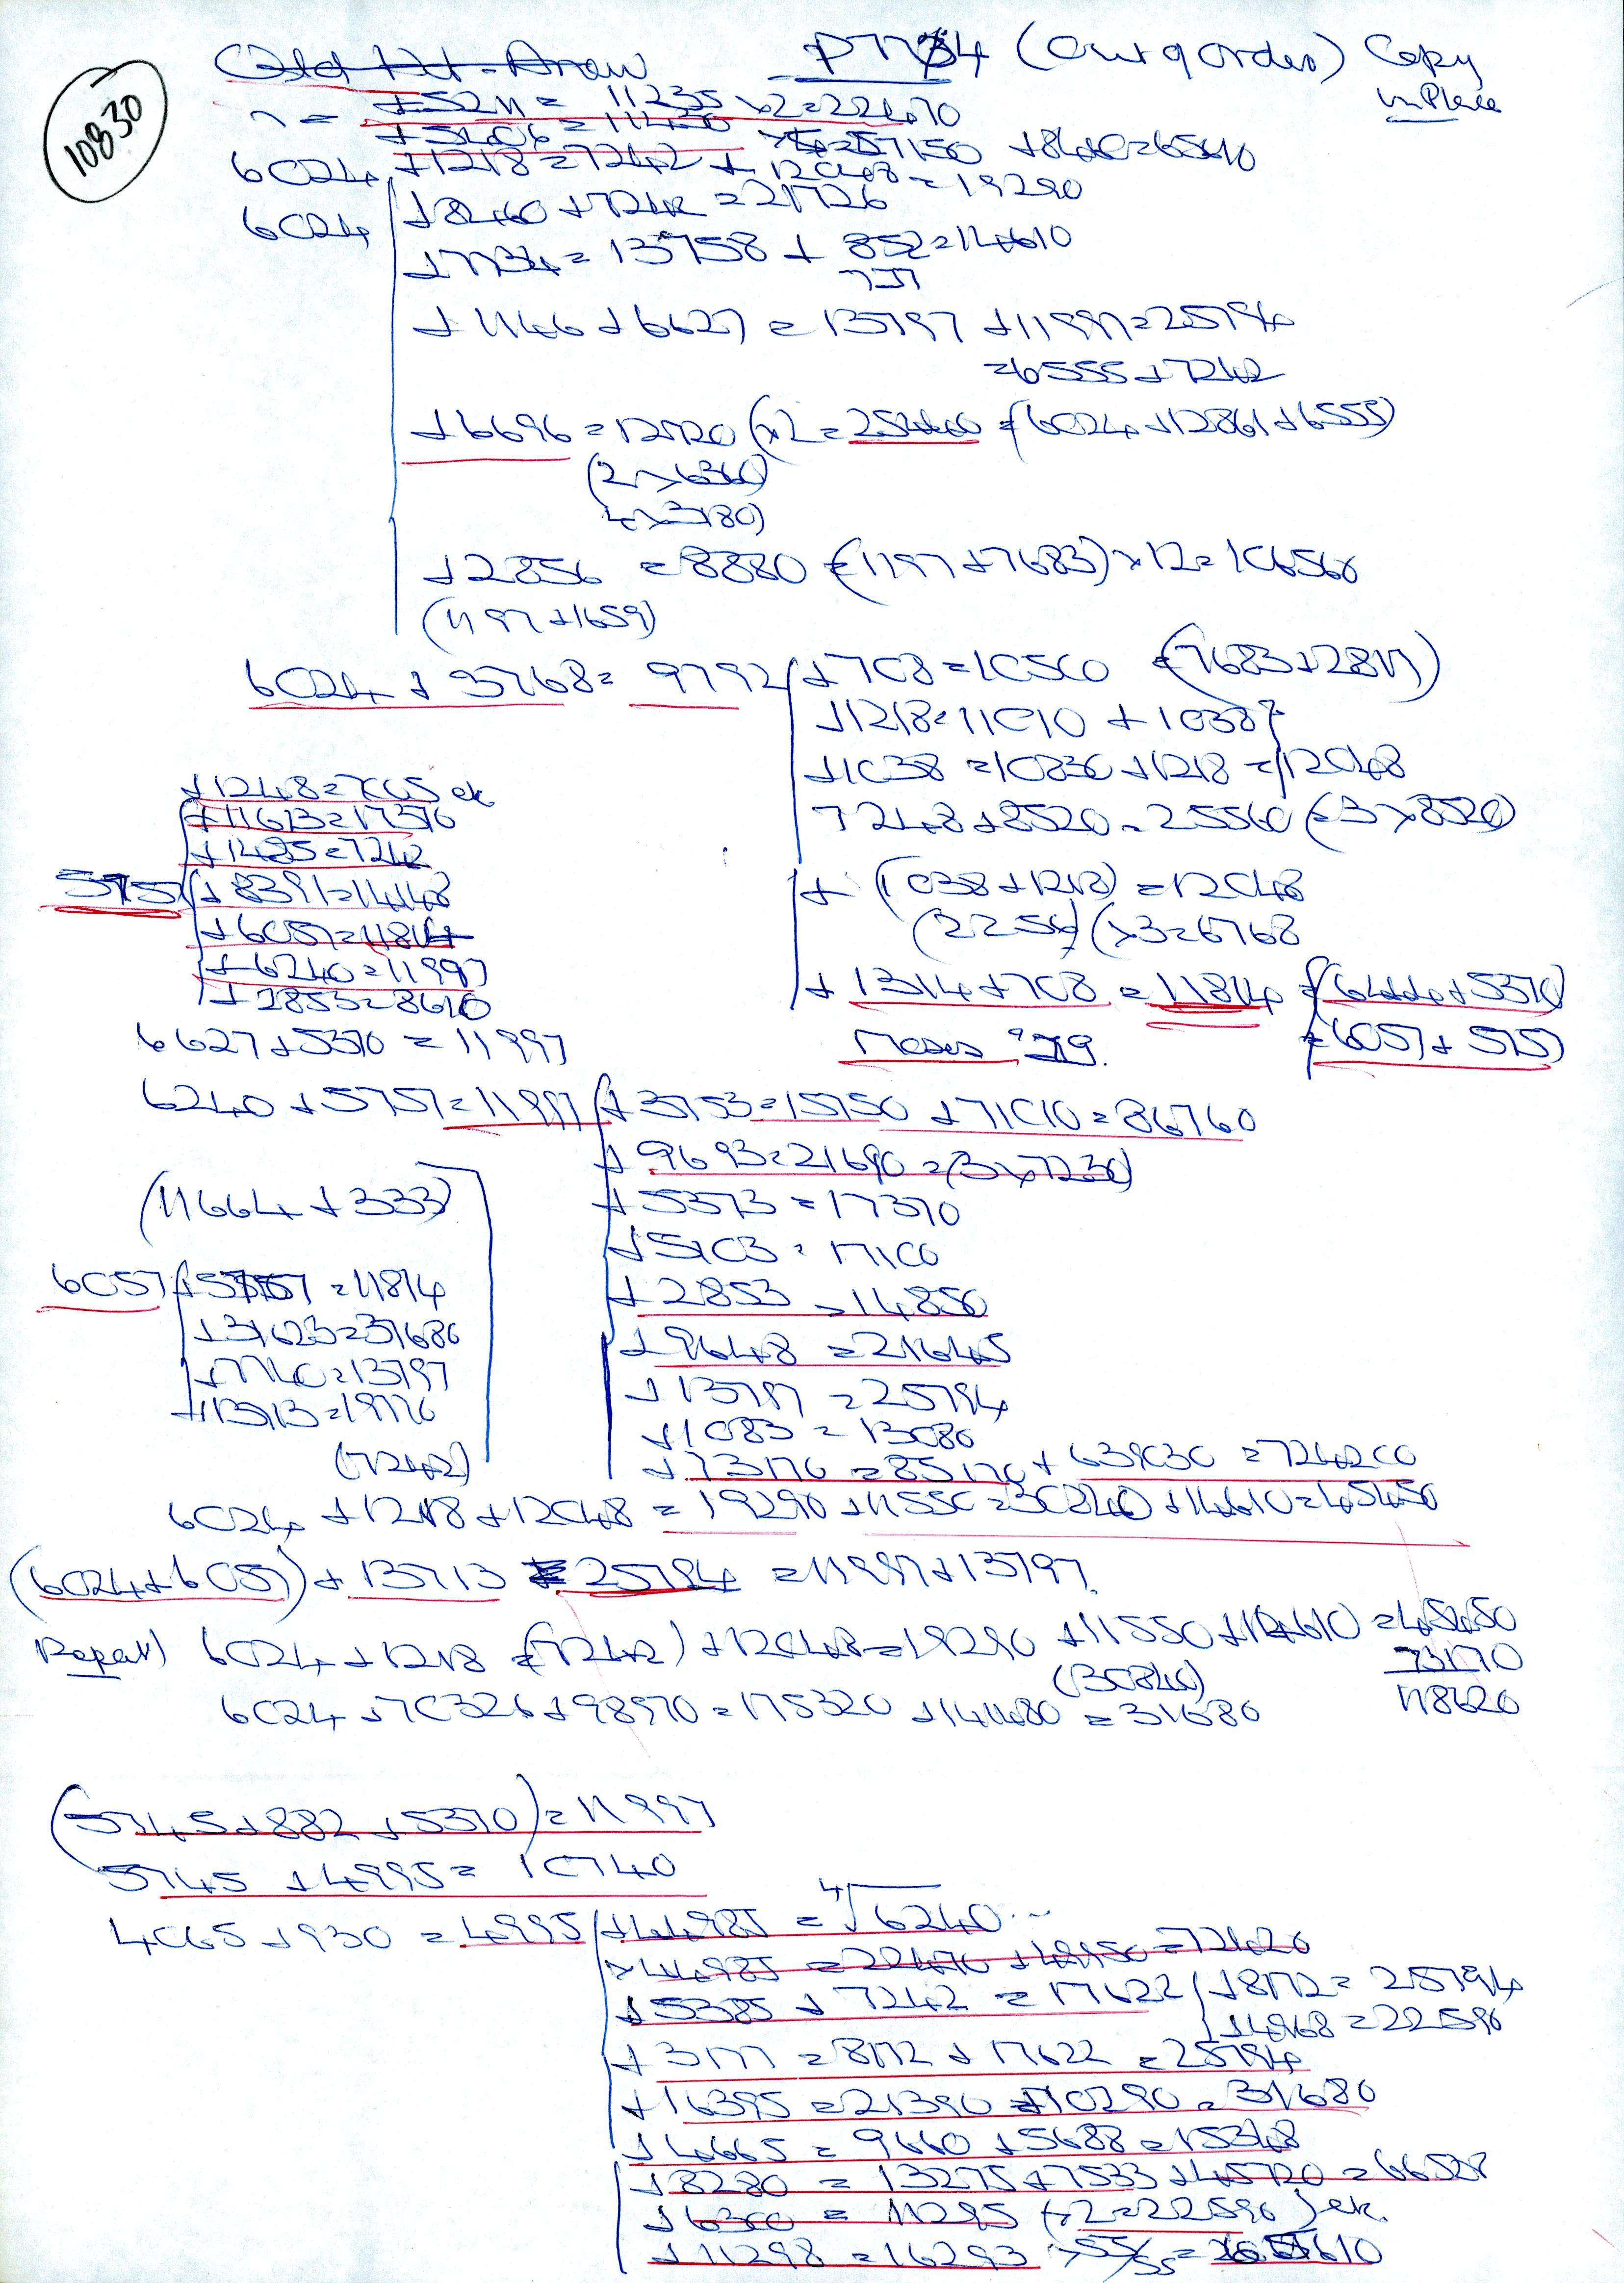 10830
(Out of Order) Copy
in Place
+5211 = 11235 x2=22470
+5406 = 11430 x5=57150 +8460=65610
6024 +1218=7242 + 12048=19290
6024 +8460+7242=21726
+7734=13758 + 852=14610
+1146+6627=13797 +11997=25794
=6555+7242
+6696=12720 (x2=25440 =(6024+12861+6555)
(2x6360)
4x3180)
+2856 =8880 =(1197+7683)x12=106560
(1197+1659)
6024+3768=9792 +708=10500 =(7683+2817)
+1218=11010 + 1038
+1038=10830+1218=12048
7248+8520=25560 (=3x8520)
+1248=7005 etc
+11613=17370
+1485=7242
5757 +8391=14148
+6057=11814
+6240=11997
+2853=8610
+ (1038+1218)=12048
(2256) (x3=6768
+1314+708=11814 =(6444+5370)
=(6057+5757)
Moses 
6627+5370=11997
6240+5757=11997 +3753=15750 +71010=86760
+9693=21690=(3x7230)
+5373=17370
+5103=17100
+2853=14850
+9648=21645
+13797=25794
+1083=13080
+73170=85170+639030=724200
(11664+333)
6057 +5757=11814
+31623=37680
+7740=13797
+13713=19770
(7242)
6024+1218+12048=19290+11550=30840+14610=45450
(6024+6057)+13713=25794=11997+13797
Repeat) 6024+1218=(7242)+12048=19290+11550+14610=45450
(30840) 73170
6024+70326+98970=175320+141480=31680 118620
(5745+882+5370)=11997
5745+4995=10740
4065+930=4995 +44985=∜6240...
x44985=22470+49950=72420
+5385+7242=17622 +8172=25794
+4968=22590
+3177=8172+17622=25794
+16395=21390+10290=31680
+4665=9660+5688=15348
+8280=13275+7533+45720=66528
+6300=11295 (x2=22590) etc.
+11298=16293 x55/55=